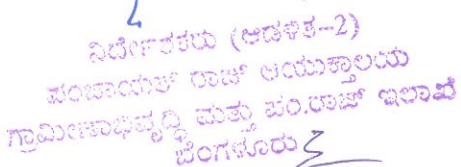 ನಿರ್ದೇಶಕರು (ಆಡಳಿತ-2)
ಪಂಚಾಯತ್ ರಾಜ್ ಆಯುಕ್ತಾಲಯ
ಗ್ರಾಮೀಣಾಭಿವೃದ್ಧಿ ಮತ್ತು ಪಂ.ರಾಜ್ ಇಲಾಖೆ
ಬೆಂಗಳೂರು